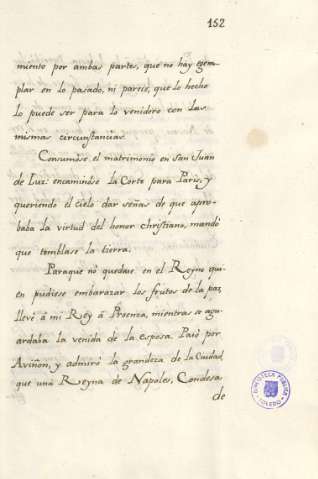 152
miento por ambas partes, que no hay exem-
plar en lo pasado, ni parece, que lo hecho
lo puede ser para lo venidero con las
mismas circunstancias.
Consumóse el matrimonio en San Juan
de Luz: encaminóse la Corte para Paris, y
queriendo el cielo dar señas de que apro-
baba la virtud del honor christiano, mandó
que temblase la tierra.
Paraque no quedase en el Reyno qui-
en pudiese embarazar los frutos de la paz
llevé á mi Rey á Proenza, mientras se agu-
ardaba la venida de la esposa. Pasó por
Aviñon, y admiró la grandeza de la Ciudad,
que una Reyna de Napoles, Condesa
de
BIBLIOTECA PÚBLICA
TOLEDO